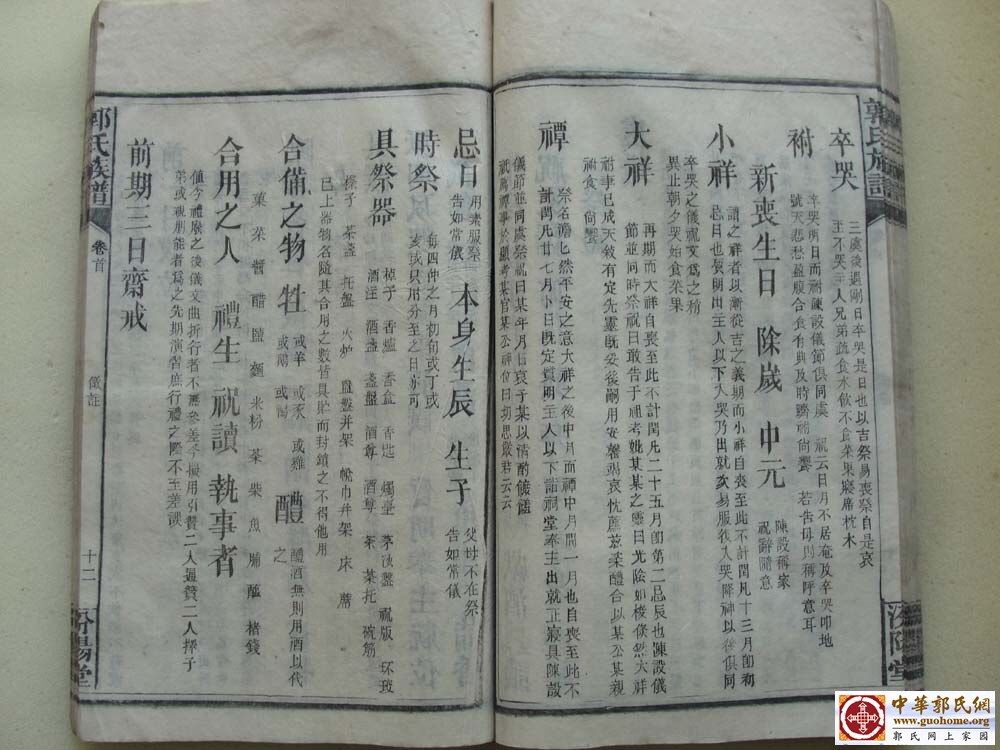 郭氏族譜
汾陽堂
卒哭
三虞後遇剛日卒哭是日也以吉祭易喪祭自是哀
至不哭主人兄弟疏食水飲不食菜果寢席枕木
祔
卒哭明日而祔陳設儀節俱同虞 祝云日月不居奄及卒哭叩地
號天悲愁盈腹合食有典及時躋祔尚饗 若告母則稱呼意耳
新喪生日 除歲 中元
陳設稱家
祝辭隨意
小祥
謂之祥者以漸從吉之義期而小祥自喪至此不計閏凡十三月卽初
忌日也質明出主人以下入哭乃出就次易服復入哭降神以後俱同
卒哭之儀祝文爲之稍
異止朝夕哭始食菜果
大祥
再期而大祥自喪至此不計閏凡二十五月卽第二忌辰也陳設儀
節並同時祭祝曰敢告于顯考妣某某之靈日光陰如梭條然大祥
祔事已成天敘有定先靈旣妥後嗣用安馨 哀忱薦 柔醴合以某公某親
祔食 尙饗
禫
祭名澹澹然平安之意大祥之後中月而禫中月間一月也自喪至此不
計閏凡廿七月小日旣定質明主人以下詣祠堂奉主出就正寢具陳設
儀節並同虞祭祝曰某年月日哀子某以清酌儀謹
祇薦禫事於顯考某官某公神位曰切思嚴君云云
忌日
用素服祭
告如常儀
本身生辰 生子
父母不在祭
告如常儀
時祭
每四仲之月初旬或丁或
亥或只用分至之日亦可
具祭器
椅子 香爐 香盒 香匙 燭臺 茅沙盤 祝版 环珓
酒注 酒盞 盞盤 酒尊 酒尊 架 菜托 碗筋
楪子 茶盞 托盤 火炉 盥盤并架 帨巾并架 床 席
已上器物各隨其合用之數皆具貯而封鎖之不得他用
合備之物 牲
或羊 或豕 或雞
或鵝 或 或
醴
醴酒無則用酒以代
菓 菜 醬 醋 鹽 麵 米粉 茶 柴 魚 腑 醢 楮錢
合用之人 禮生 祝讀 執事者
值今禮廢之後儀文曲折行者不無參差今擬用引贊二人通贊二人擇子
弟或親朋能者爲之先期演習庶行禮之際不至差誤
前期三日齋戒
郭氏族譜
卷首
儀註
十二
汾陽堂
中華郭氏網
www.guohome.org
郭氏网上家園